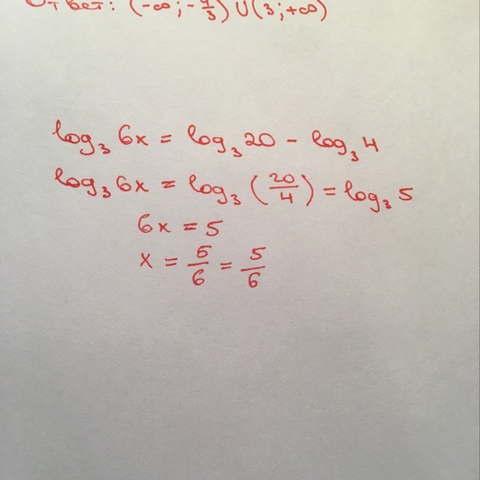 Ответ: (-∞; -4/3) ∪ (3; +∞)
log₃ 6x = log₃ 20 - log₃ 4
log₃ 6x = log₃ (20/4) = log₃ 5
6x = 5
x = 5/6 = 5/6